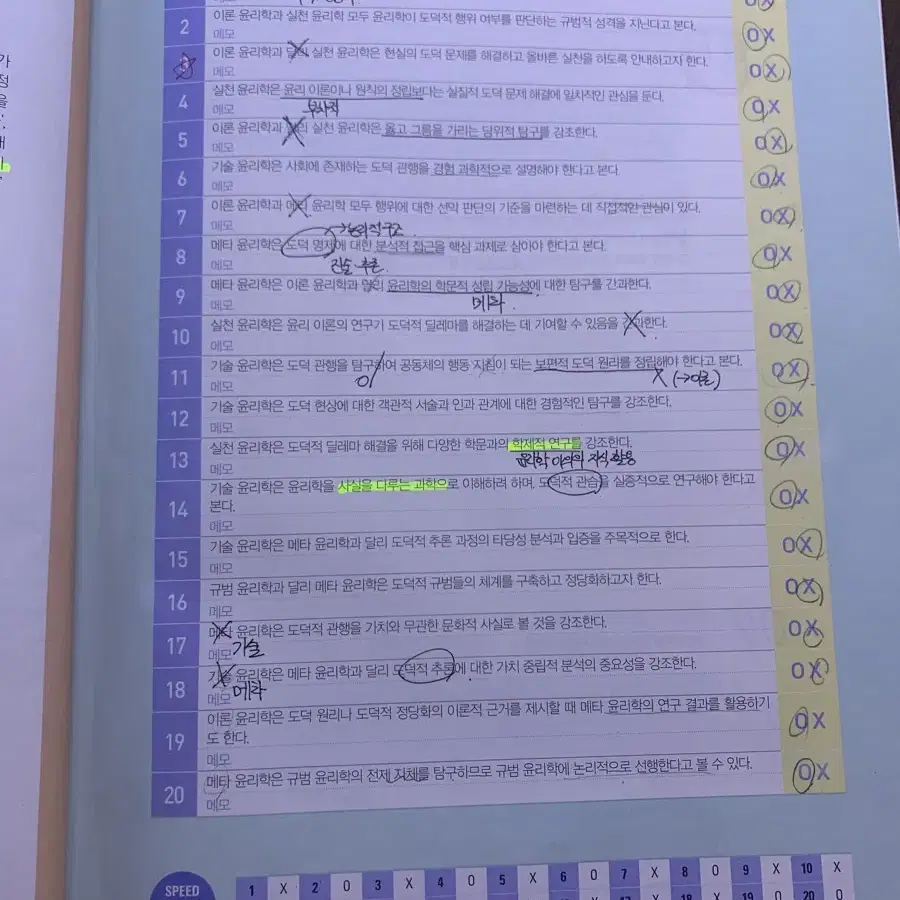 2 이론 윤리학과 실천 윤리학 모두 윤리학이 도덕적 행위 여부를 판단하는 규범적 성격을 지닌다고 본다. O X
메모
3 이론 윤리학과 달리 실천 윤리학은 현실의 도덕 문제를 해결하고 올바른 실천을 하도록 안내하고자 한다. O X
메모
4 실천 윤리학은 윤리 이론이나 원칙의 정립보다는 실질적 도덕 문제 해결에 일차적인 관심을 둔다. O X
메모 부차적
5 이론 윤리학과 달리 실천 윤리학은 옳고 그름을 가리는 당위적 탐구를 강조한다. O X
메모
6 기술 윤리학은 사회에 존재하는 도덕 관행을 경험 과학적으로 설명해야 한다고 본다. O X
메모
7 이론 윤리학과 메타 윤리학 모두 행위에 대한 선악 판단의 기준을 마련하는 데 직접적인 관심이 있다. O X
메모 →논리적 구조
8 메타 윤리학은 도덕 명제에 대한 분석적 접근을 핵심 과제로 삼아야 한다고 본다. O X
메모 진술·추론
9 메타 윤리학은 이론 윤리학과 달리 윤리학의 학문적 성립 가능성에 대한 탐구를 간과한다. O X
메모 메타
10 실천 윤리학은 윤리 이론의 연구가 도덕적 딜레마를 해결하는 데 기여할 수 있음을 간과한다. O X
메모
11 기술 윤리학은 도덕 관행을 탐구하여 공동체의 행동 지침이 되는 보편적 도덕 원리를 정립해야 한다고 본다. O X
메모 O X (→이론)
12 기술 윤리학은 도덕 현상에 대한 객관적 서술과 인과 관계에 대한 경험적인 탐구를 강조한다. O X
메모
13 실천 윤리학은 도덕적 딜레마 해결을 위해 다양한 학문과의 학제적 연구를 강조한다. O X
메모 윤리학 이외의 지식 활용
14 기술 윤리학은 윤리학을 사실을 다루는 과학으로 이해하려 하며, 도덕적 관습을 실증적으로 연구해야 한다고 O X
본다.
메모
15 기술 윤리학은 메타 윤리학과 달리 도덕적 추론 과정의 타당성 분석과 입증을 주목적으로 한다. O X
메모
16 규범 윤리학과 달리 메타 윤리학은 도덕적 규범들의 체계를 구축하고 정당화하고자 한다. O X
메모
17 메타 윤리학은 도덕적 관행을 가치와 무관한 문화적 사실로 볼 것을 강조한다. O X
메모 기술
18 기술 윤리학은 메타 윤리학과 달리 도덕적 추론에 대한 가치 중립적 분석의 중요성을 강조한다. O X
메모 메타
19 이론 윤리학은 도덕 원리나 도덕적 정당화의 이론적 근거를 제시할 때 메타 윤리학의 연구 결과를 활용하기 O X
도 한다.
메모
20 메타 윤리학은 규범 윤리학의 전제 자체를 탐구하므로 규범 윤리학에 논리적으로 선행한다고 볼 수 있다. O X
메모
SPEED 1 X 2 O 3 X 4 O 5 X 6 O 7 X 8 O 9 X 10 X